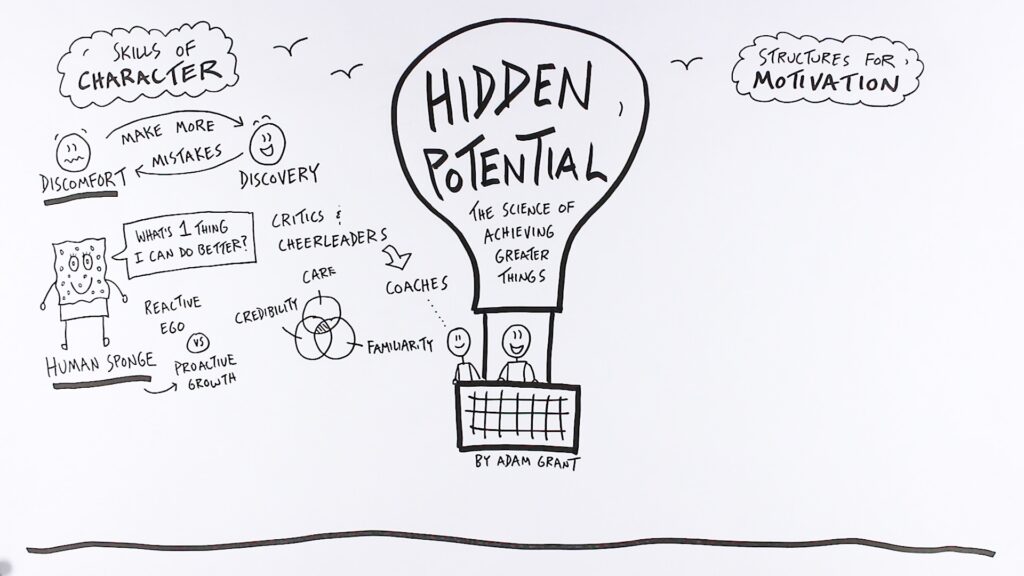 SKILLS OF
CHARACTER
MAKE MORE
MISTAKES
DISCOMFORT
DISCOVERY
WHAT'S 1 THING
I CAN DO BETTER?
HUMAN SPONGE
REACTIVE
EGO
VS
PROACTIVE
GROWTH
CRITICS &
CHEERLEADERS
COACHES
CARE
CREDIBILITY
FAMILIARITY
HIDDEN
POTENTIAL
THE SCIENCE OF
ACHIEVING
GREATER
THINGS
BY ADAM GRANT
STRUCTURES FOR
MOTIVATION